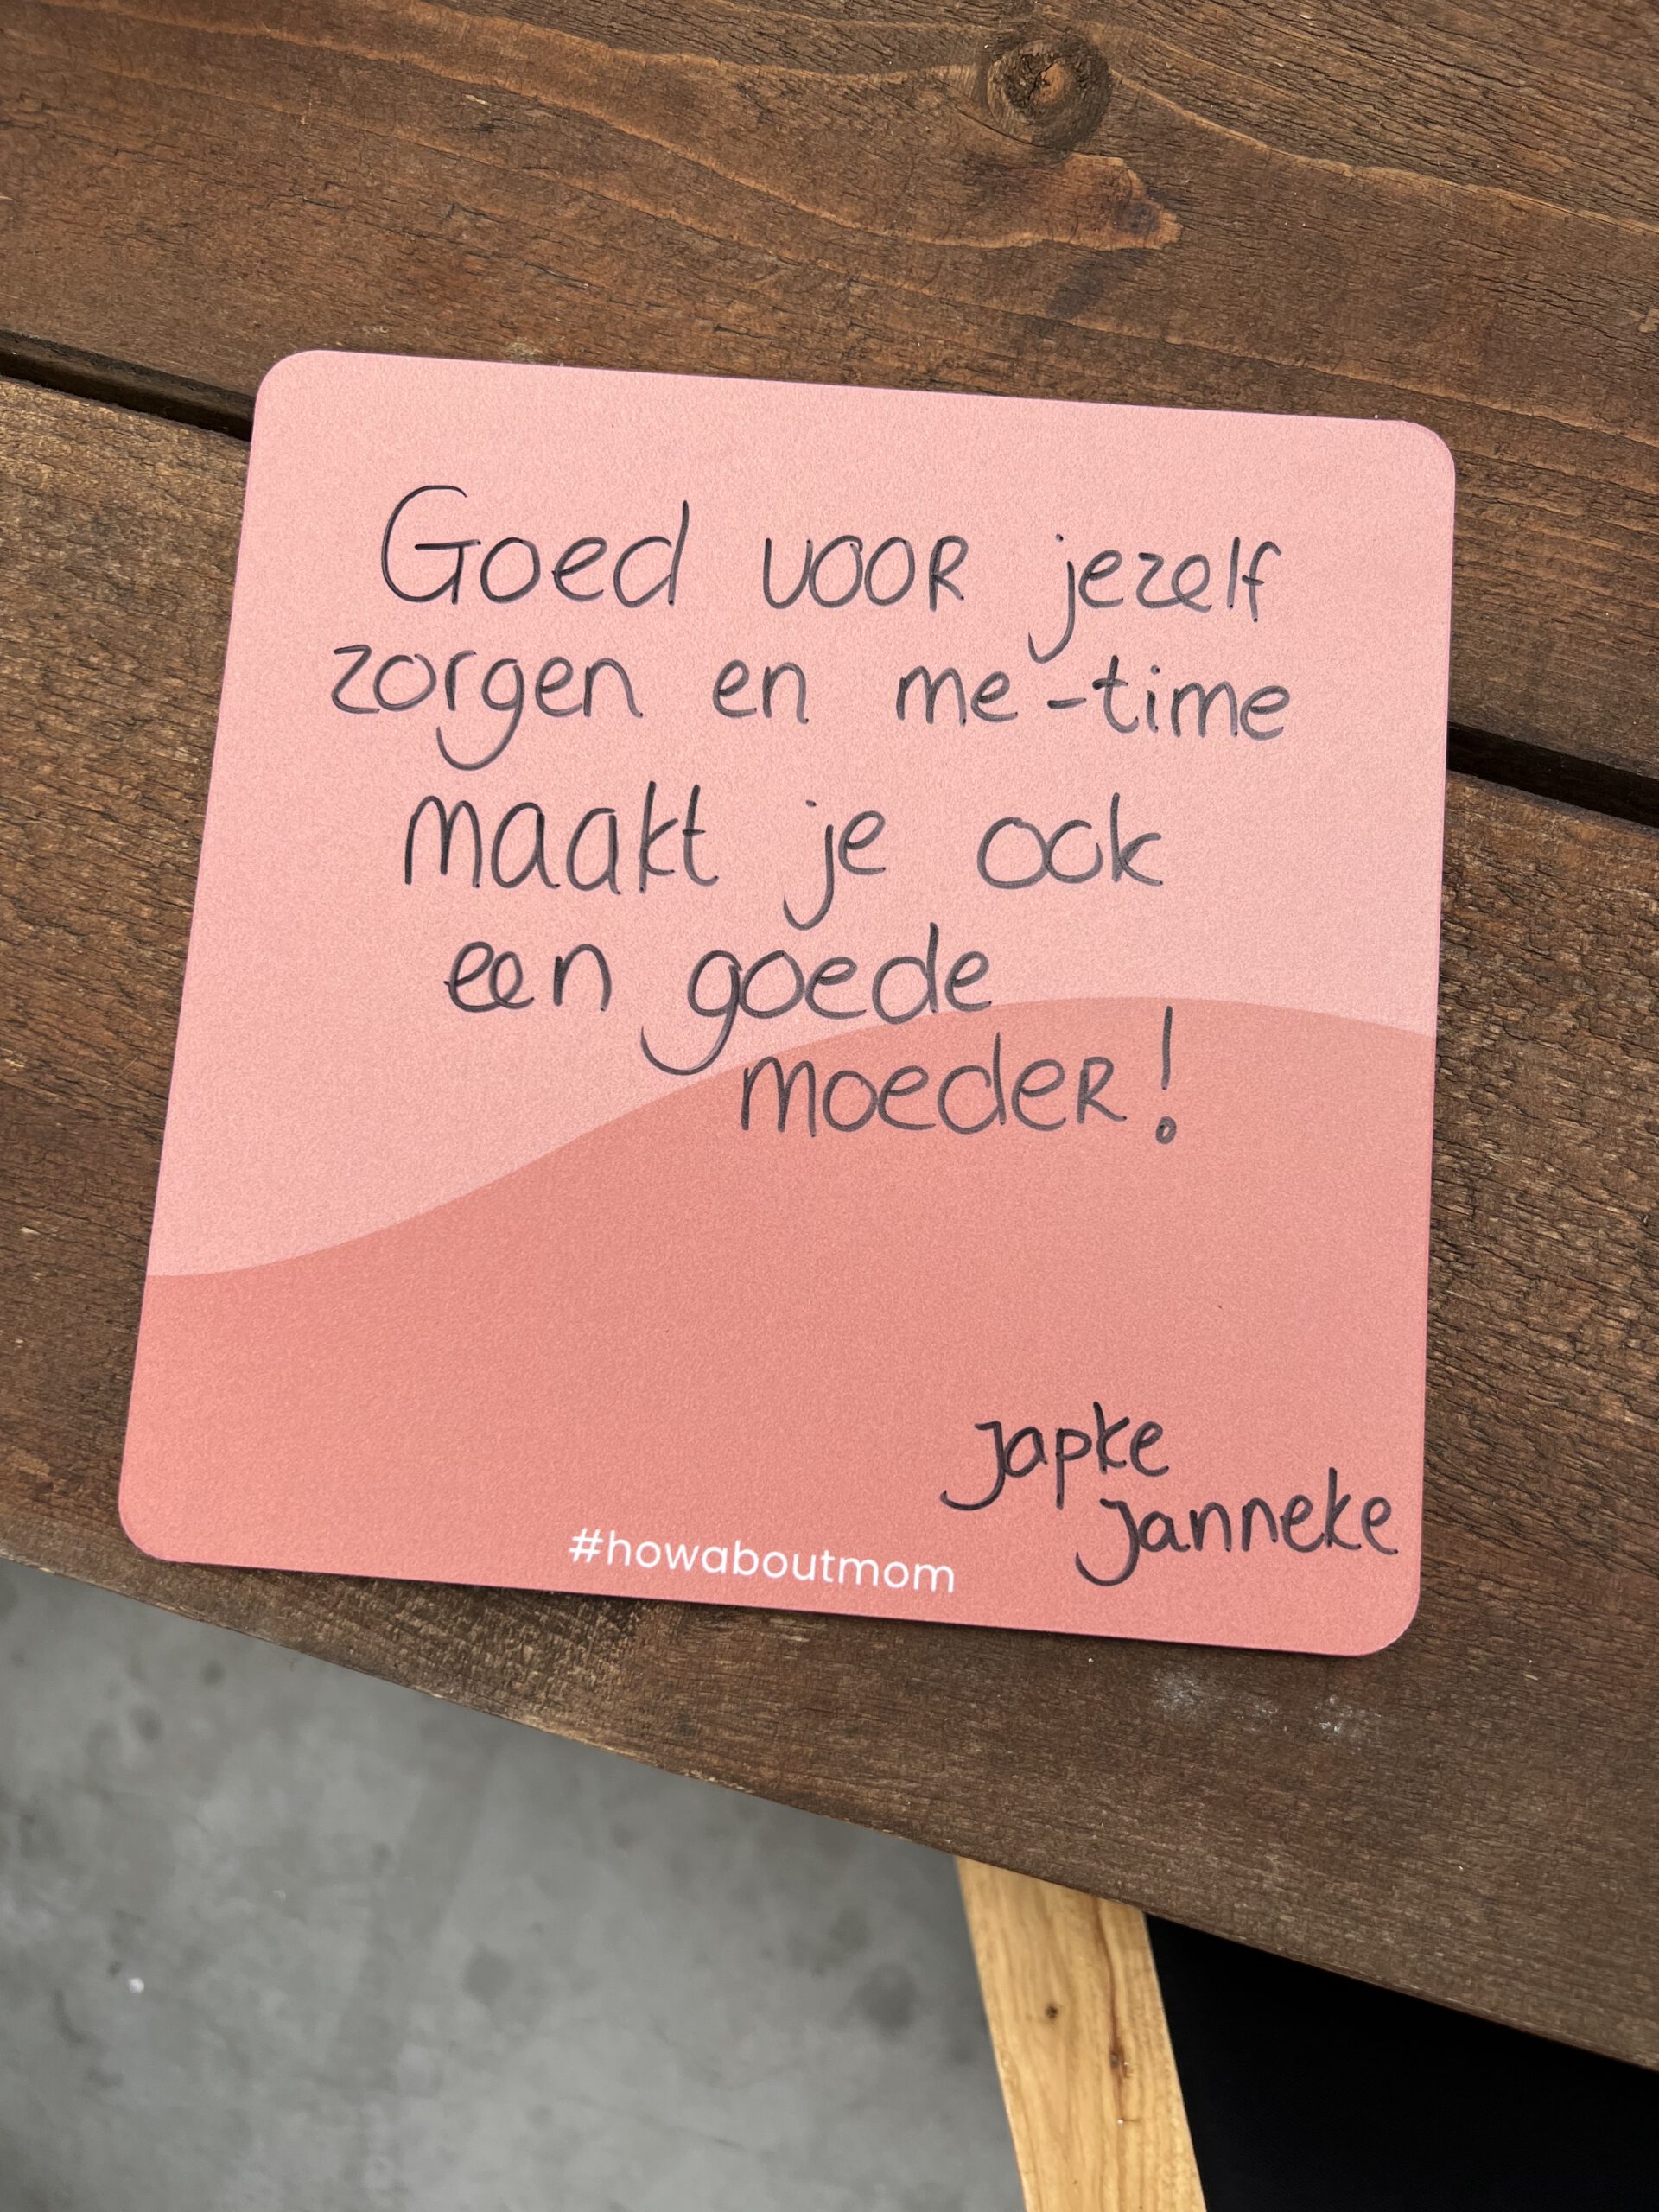 Goed voor jezelf
zorgen en me-time
maakt je ook
een goede
moeder!
Japke
Janneke
#howaboutmom